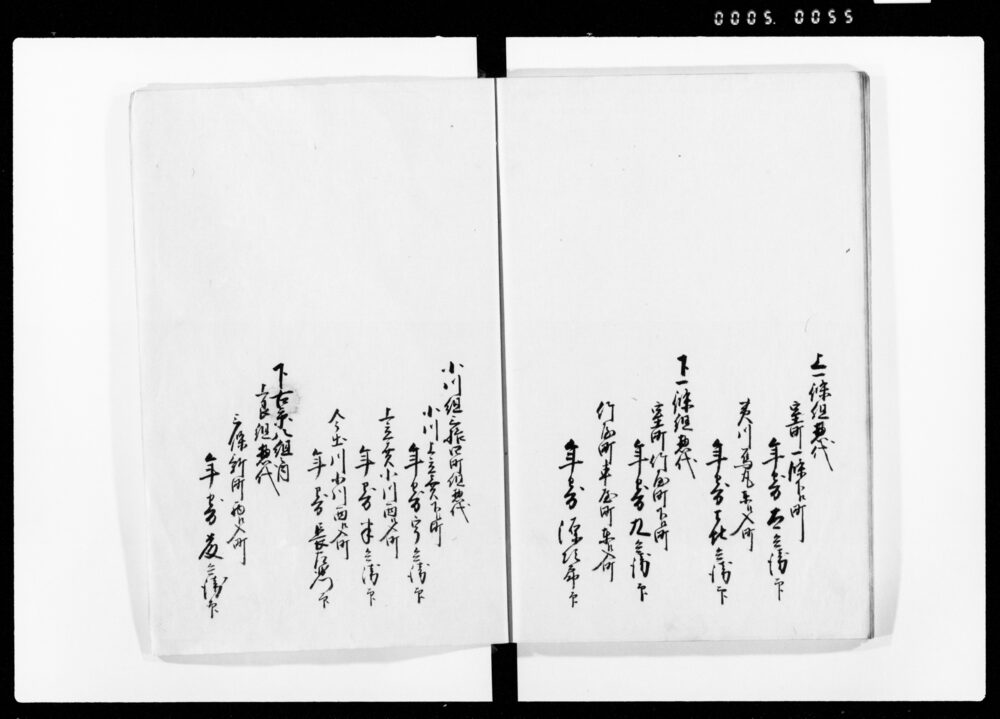 0005. 0055
上一條組惣代
室町一條下ル町
年寄 吉兵衛印
夷川烏丸東へ入町
年寄 兵衛印
下一條組惣代
室町竹屋町下ル町
年寄 九兵衛印
竹屋町車屋町東へ入町
年寄 源次郎印
小川組 町組惣代
小川上立売下ル町
年寄 宇兵衛印
上立売小川西へ入町
年寄 半兵衛印
今出川小川西へ入町
年寄 長左衛門印
下古京八組内
上艮組惣代
三條新町西へ入町
年寄 兵衛印